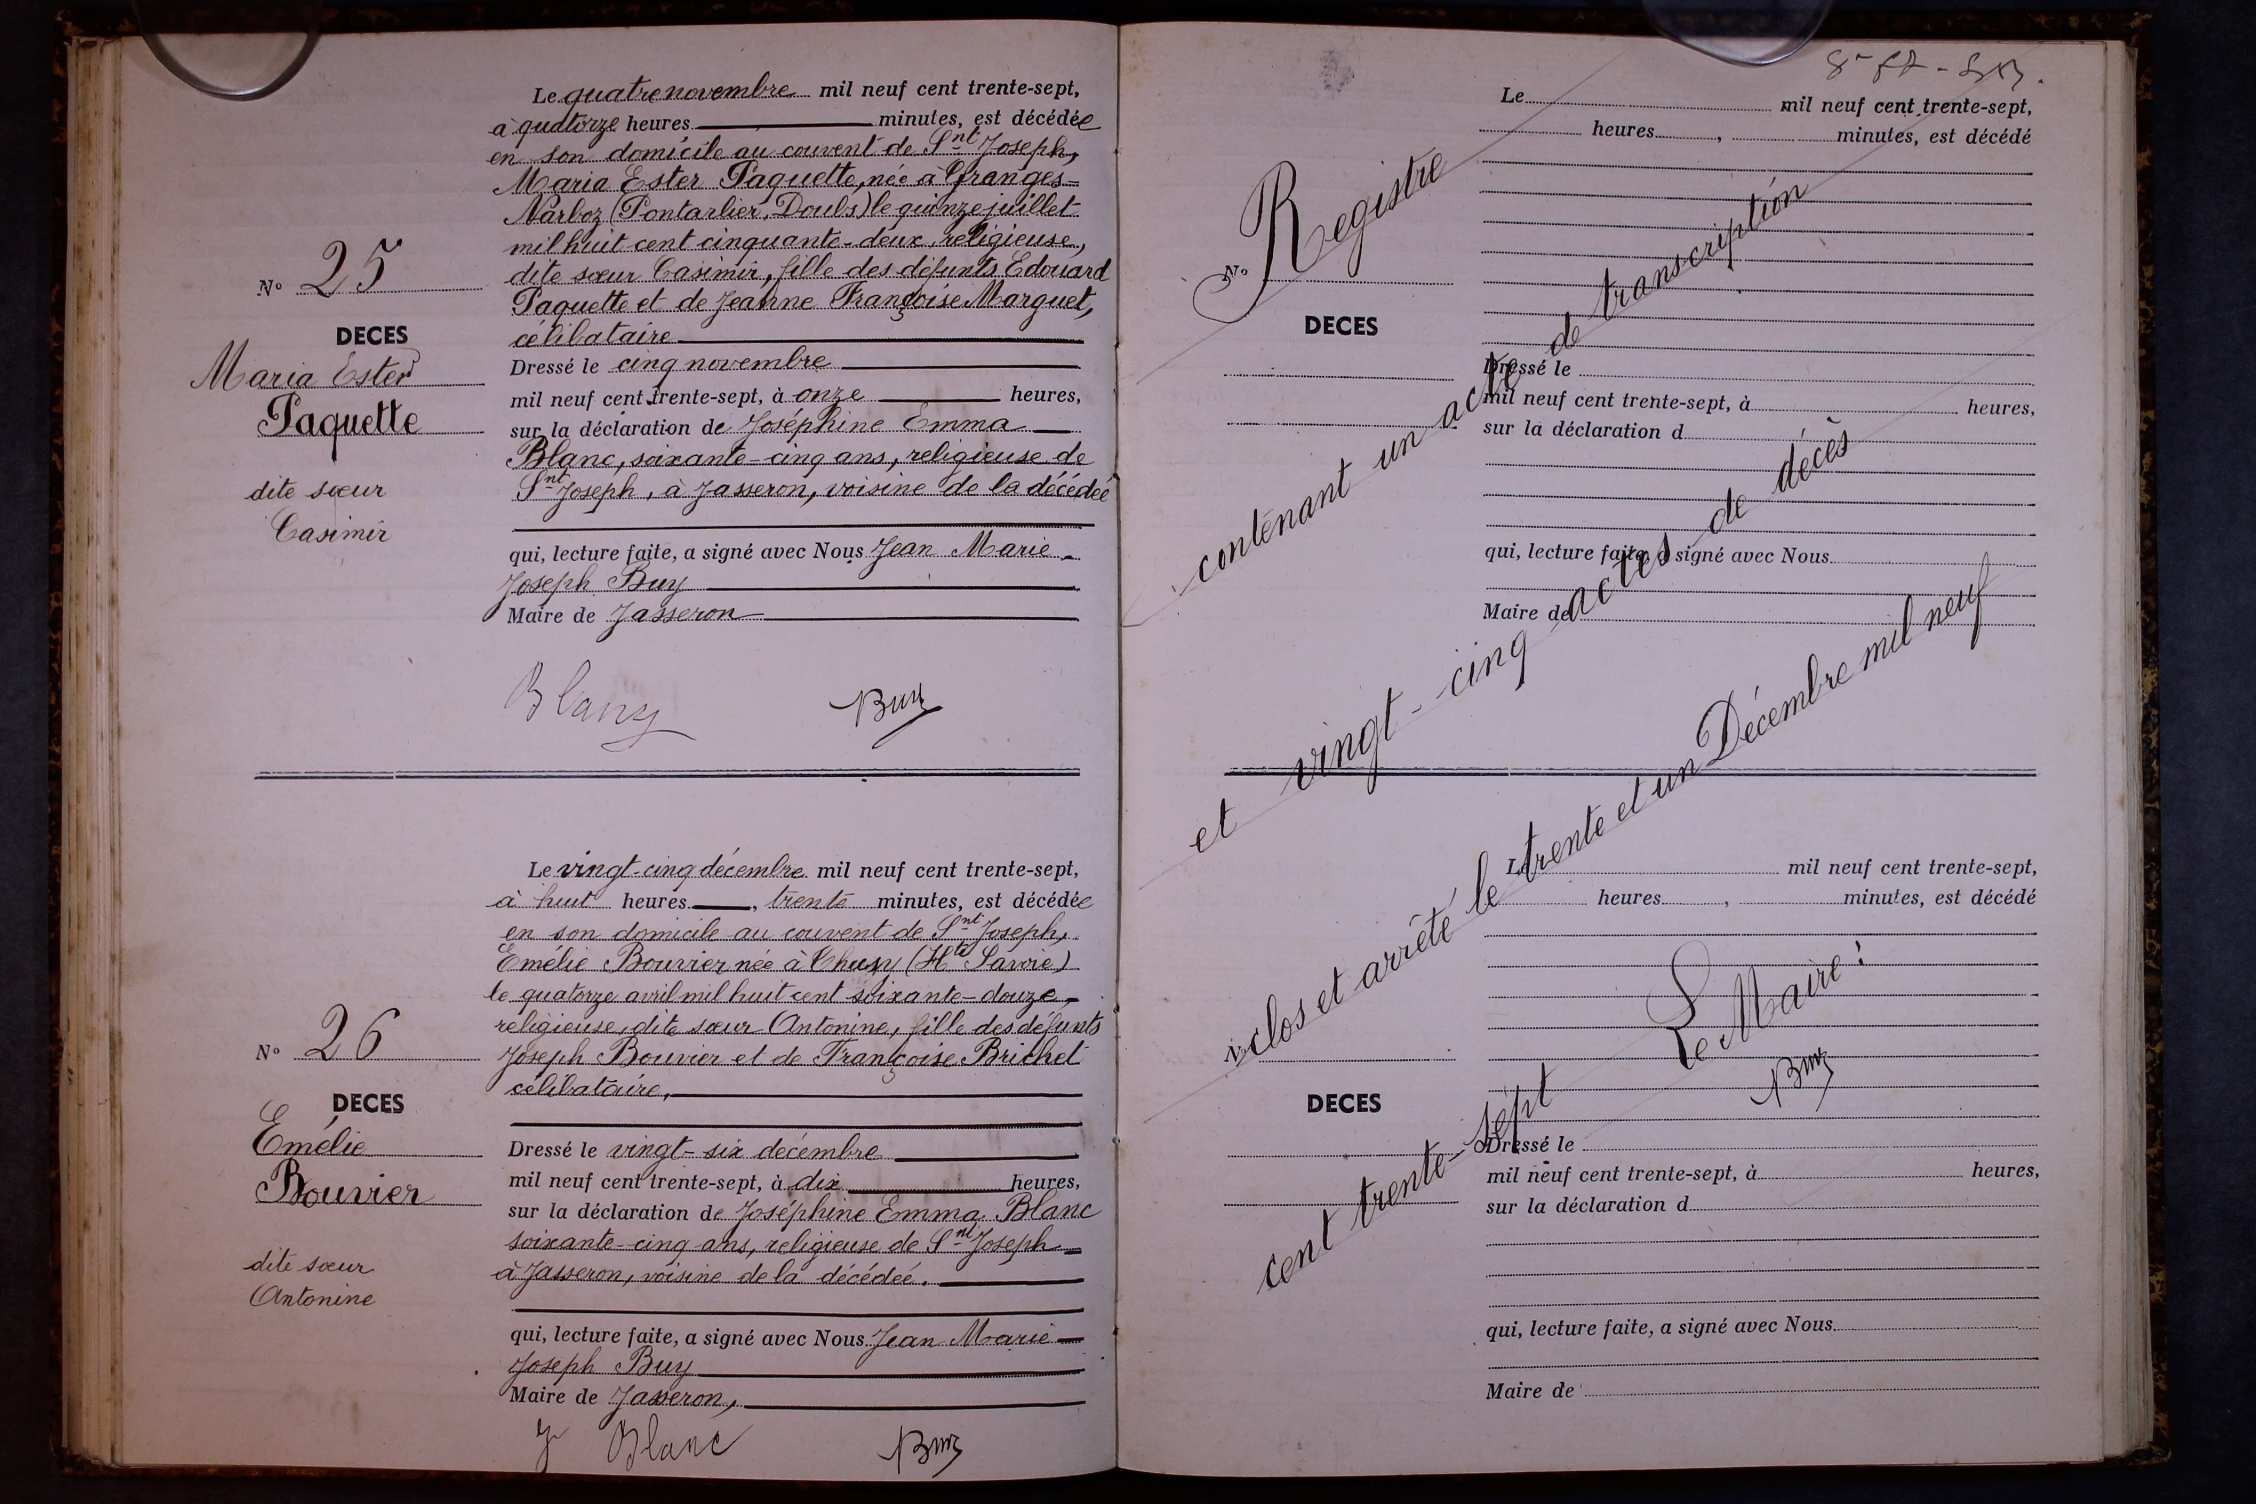 Le quatre novembre mil neuf cent trente-sept,
à quatorze heures minutes, est décédée
en son domicile au couvent de Snt Joseph,
Maria Ester Paquette, née à Granges-
Narboz (Pontarlier, Doubs) le quinze juillet
mil huit cent cinquante-deux, religieuse,
dite sœur Casimir, fille des défunts Edouard
Paquette et de Jeanne Françoise Marguet,
célibataire
Dressé le cinq novembre
mil neuf cent trente-sept, à onze heures,
sur la déclaration de Joséphine Emma
Blanc, soixante-cinq ans, religieuse de
Snt Joseph, à Jasseron, voisine de la décédeé
qui, lecture faite, a signé avec Nous Jean Marie
Joseph Buy
Maire de Jasseron
Blanc Buy
No 25
DECES
Maria Ester
Paquette
dite sœur
Casimir
Le vingt-cinq décembre mil neuf cent trente-sept,
à huit heures, trente minutes, est décédée
en son domicile au couvent de Snt Joseph,
Emélie Bouvier née à (Hte Savoie)
le quatorze avril mil huit cent soixante-douze,
religieuse, dite sœur Antonine, fille des défunts
Joseph Bouvier et de Françoise Brichet
célibataire,
Dressé le vingt-six décembre
mil neuf cent trente-sept, à dix heures,
sur la déclaration de Joséphine Emma Blanc
soixante-cinq ans, religieuse de Snt Joseph
à Jasseron, voisine de la décédeé.
qui, lecture faite, a signé avec Nous Jean Marie
Joseph Buy
Maire de Jasseron,
Blanc Buy
No 26
DECES
Emélie
Bouvier
dite sœur
Antonine
Le mil neuf cent trente-sept,
heures, minutes, est décédé
No
DECES
Dressé le
mil neuf cent trente-sept, à heures,
sur la déclaration d
qui, lecture faite, a signé avec Nous
Maire de
Registre
contenant un acte de transcription
et vingt-cinq actes de décès
clos et arrêté le trente et un Décembre mil neuf
cent trente-sept
Le Maire:
Buy
Le mil neuf cent trente-sept,
heures, minutes, est décédé
DECES
Dressé le
mil neuf cent trente-sept, à heures,
sur la déclaration d
qui, lecture faite, a signé avec Nous
Maire de